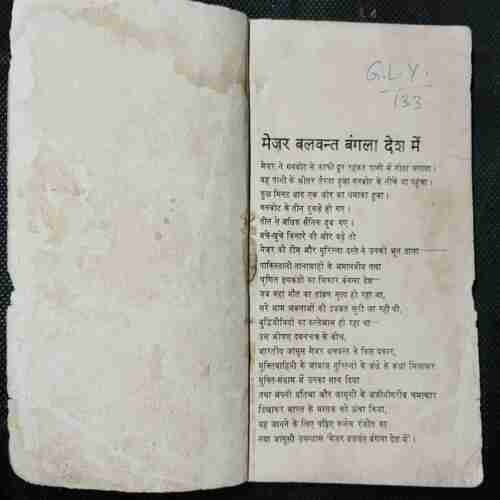 G.L.Y.
133
मेजर बलवन्त बंगला देश में
मेजर ने गनबोट से काफी दूर रहकर पानी में गोता लगाया।
वह पानी के भीतर तैरता हुआ गनबोट के नीचे जा पहुंचा।
कुछ मिनट बाद एक जोर का धमाका हुआ।
गनबोट के तीन टुकड़े हो गए।
तीस से अधिक सैनिक डूब गए।
बचे-खुचे किनारे की ओर बढ़े तो
मेजर की टीम और गुरिल्ला दस्ते ने उनको भून डाला
पाकिस्तानी तानाशाही के अमानवीय तथा
घृणित हथकंडों का शिकार बंगला देश
जब वहां मौत का तांडव नृत्य हो रहा था,
सरे आम अबलाओं की इज्जत लूटी जा रही थी,
बुद्धिजीवियों का कत्लेआम हो रहा था
उस भीषण दमनचक्र के बीच,
भारतीय जासूस मेजर बलवन्त ने किस प्रकार,
मुक्तिवाहिनी के जांबाज गुरिल्लों के कंधे से कंधा मिलाकर
मुक्ति-संग्राम में उनका साथ दिया
तथा अपनी प्रतिभा और जासूसी के अद्वितीय चमत्कार
दिखाकर भारत के मस्तक को ऊंचा किया,
यह जानने के लिए पढ़िए कर्नल रंजीत का
नया जासूसी उपन्यास 'मेजर बलवन्त बंगला देश में'।